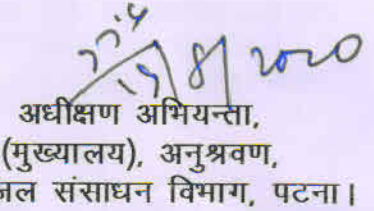 8/2020
अधीक्षण अभियन्ता,
(मुख्यालय), अनुश्रवण,
जल संसाधन विभाग, पटना।